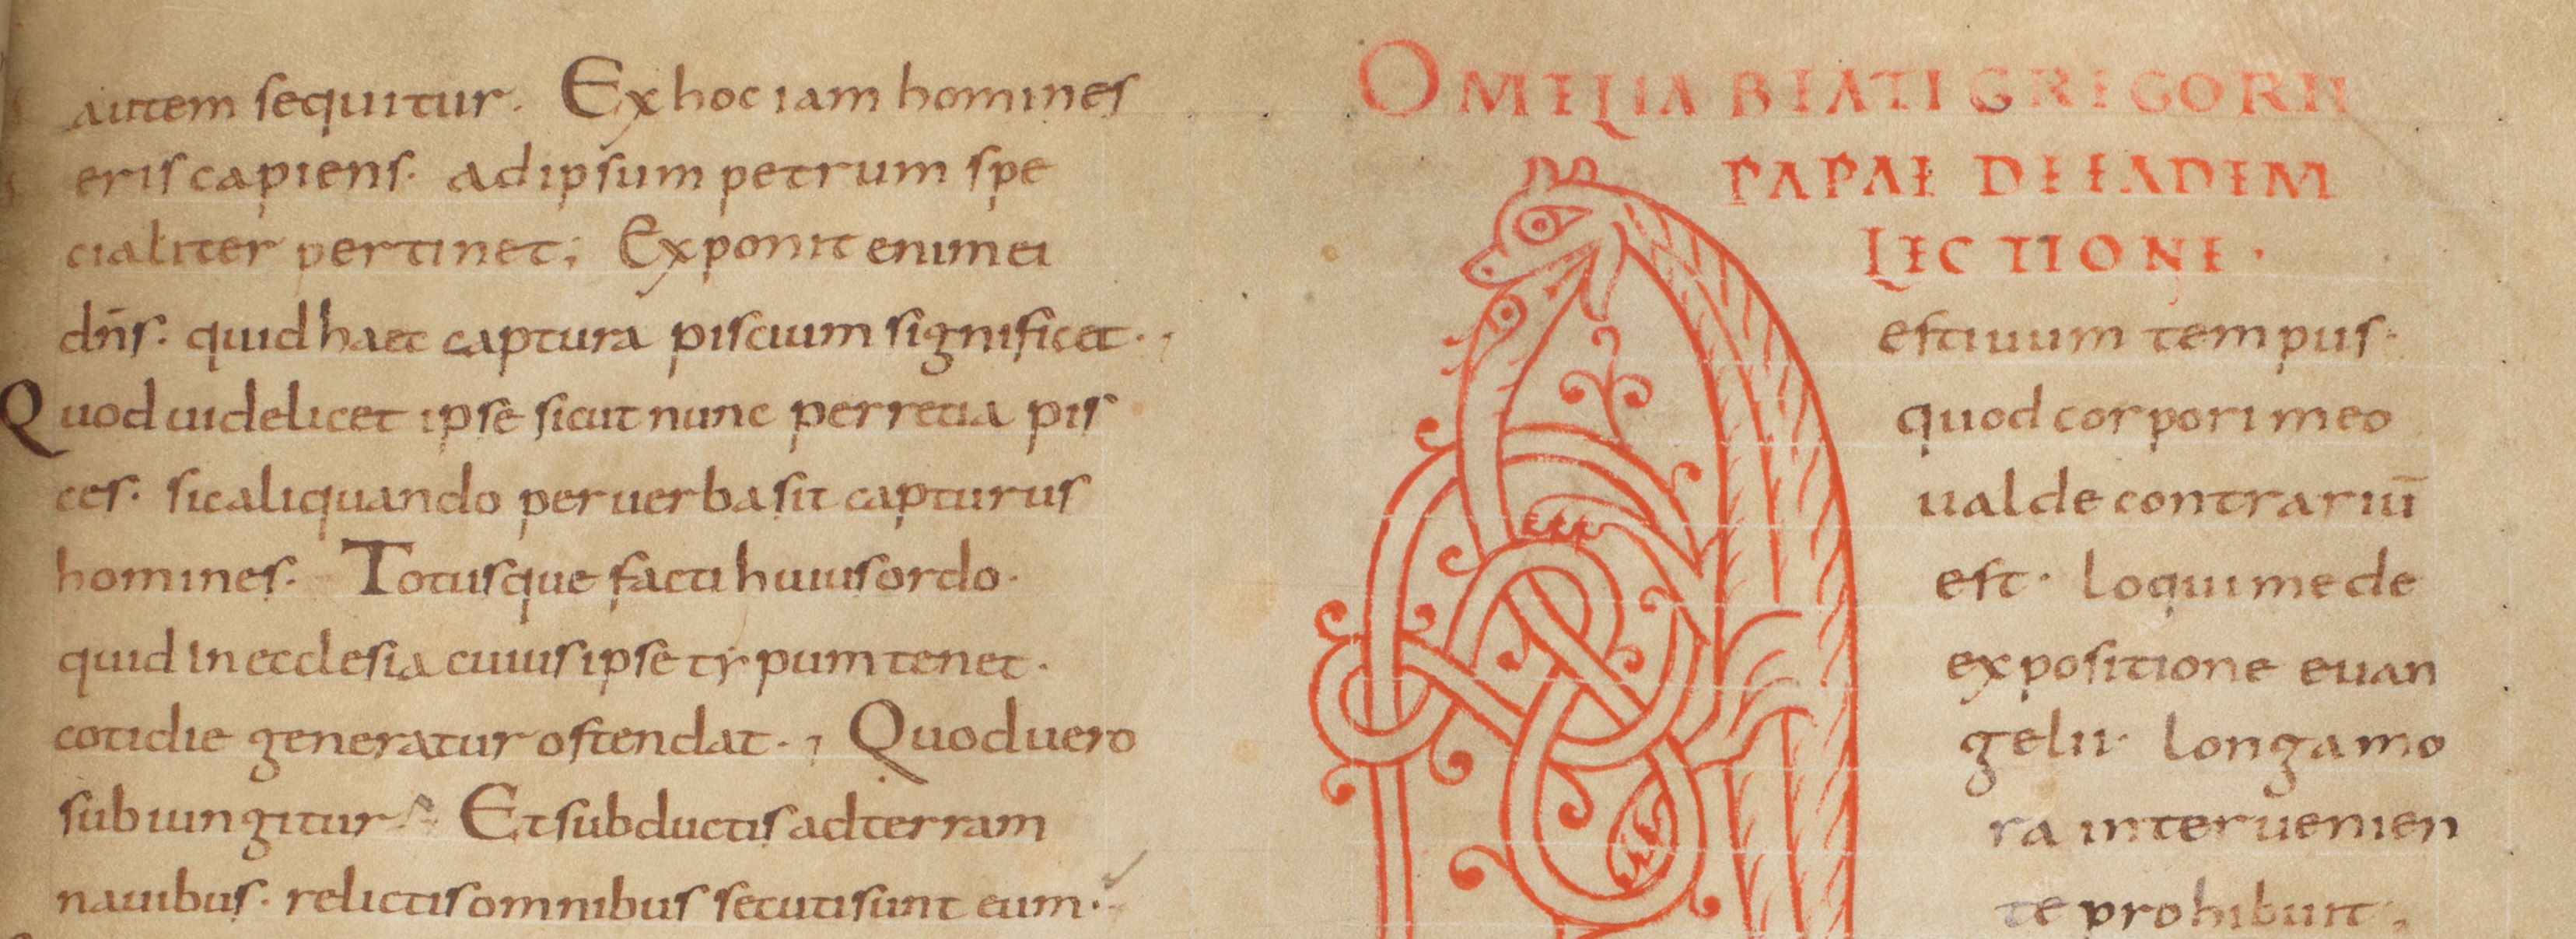 autem sequitur. Ex hoc iam homines
eris capiens. ad ipsum petrum spe
cialiter pertinet; Exponit enim ei
dn̄s. quid haec captura piscium significet.,
Quod uidelicet ipse sicut nunc per retia pis
ces. sic aliquando per uerba sit capturus
homines. Totusque facti huius ordo.
quid in ecclesia cuius ipse typum tenet.
cotidie generatur ostendat., Quod uero
subiungitur Et subductis ad terram
nauibus. relictis omnibus secuti sunt eum.
OMELIA BEATI GREGORII
PAPAE DE EADEM
LECTIONE.
Aestiuum tempus.
quod corpori meo
ualde contrariū
est. loqui me de
expositione euan
gelii. longa mo
ra interuenien
te prohibuit.,